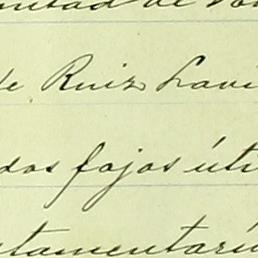 de
de Ruiz Lavi
dos fojas úti
stamentarí